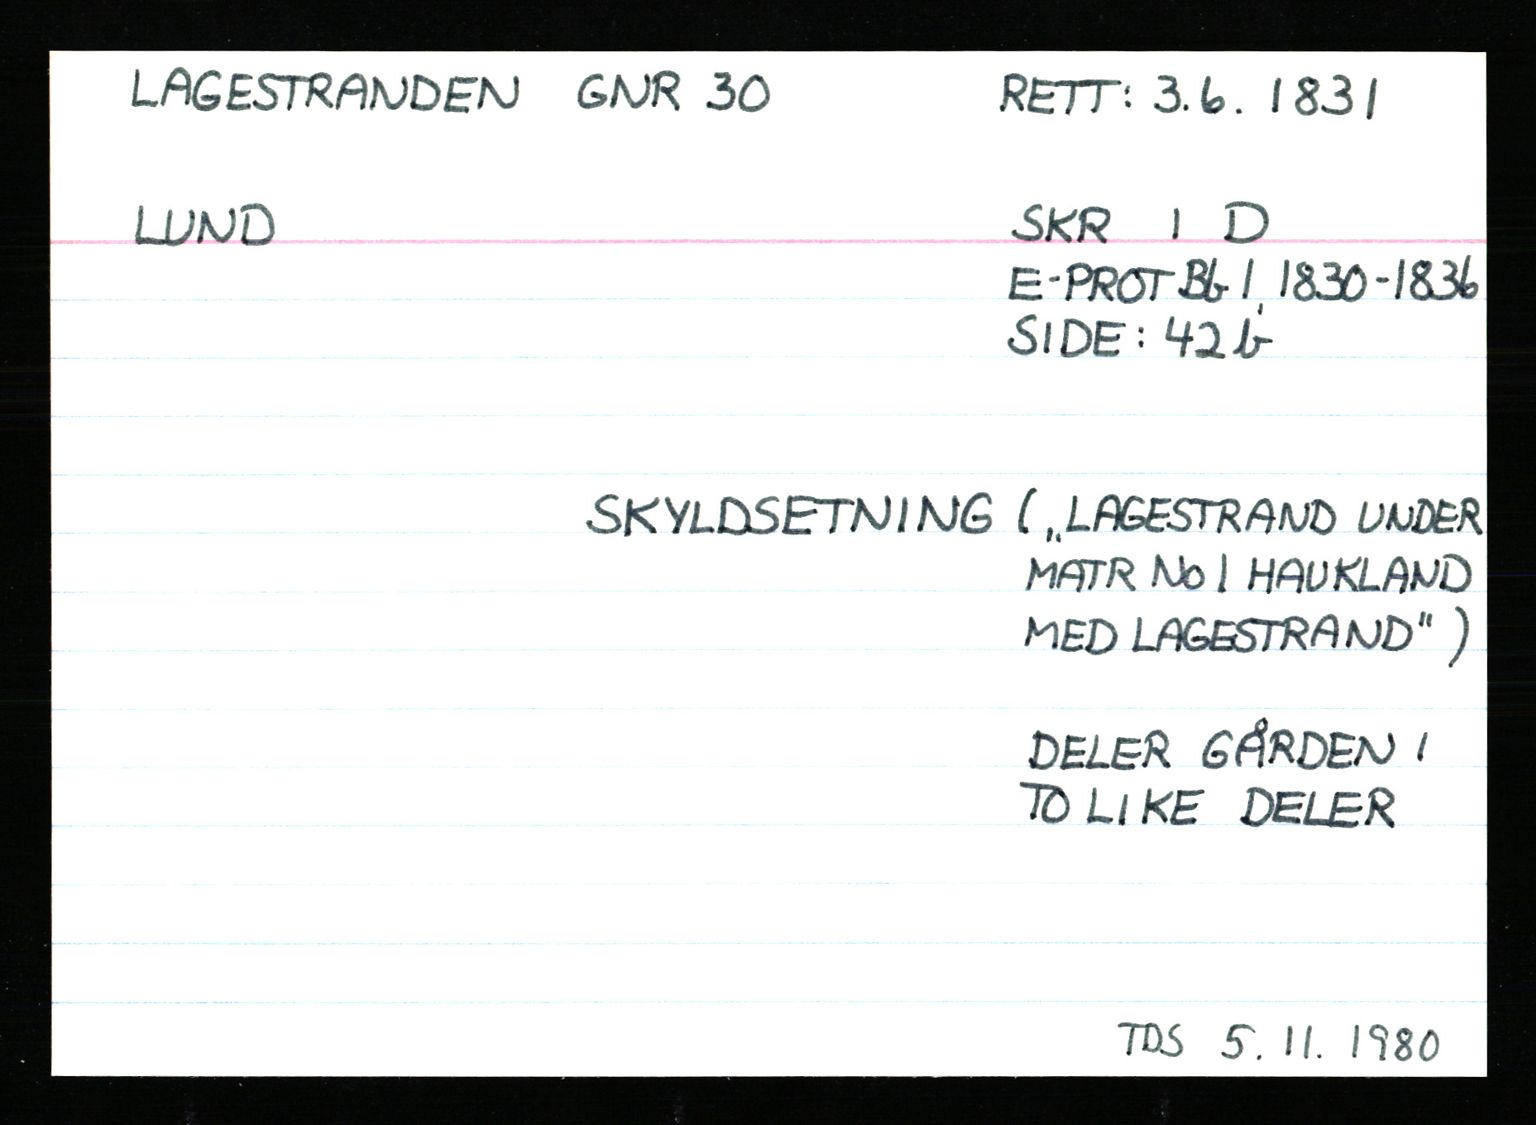 LAGESTRANDEN GNR 30 RETT: 3.6. 1831
LUND SKR I D
E-PROT Bb 1, 1830-1836
SIDE: 42 b
SKYLDSETNING („LAGESTRAND UNDER
MATR No 1 HAUKLAND
MED LAGESTRAND")
DELER GÅRDEN I
TO LIKE DELER
TDS 5. 11. 1980